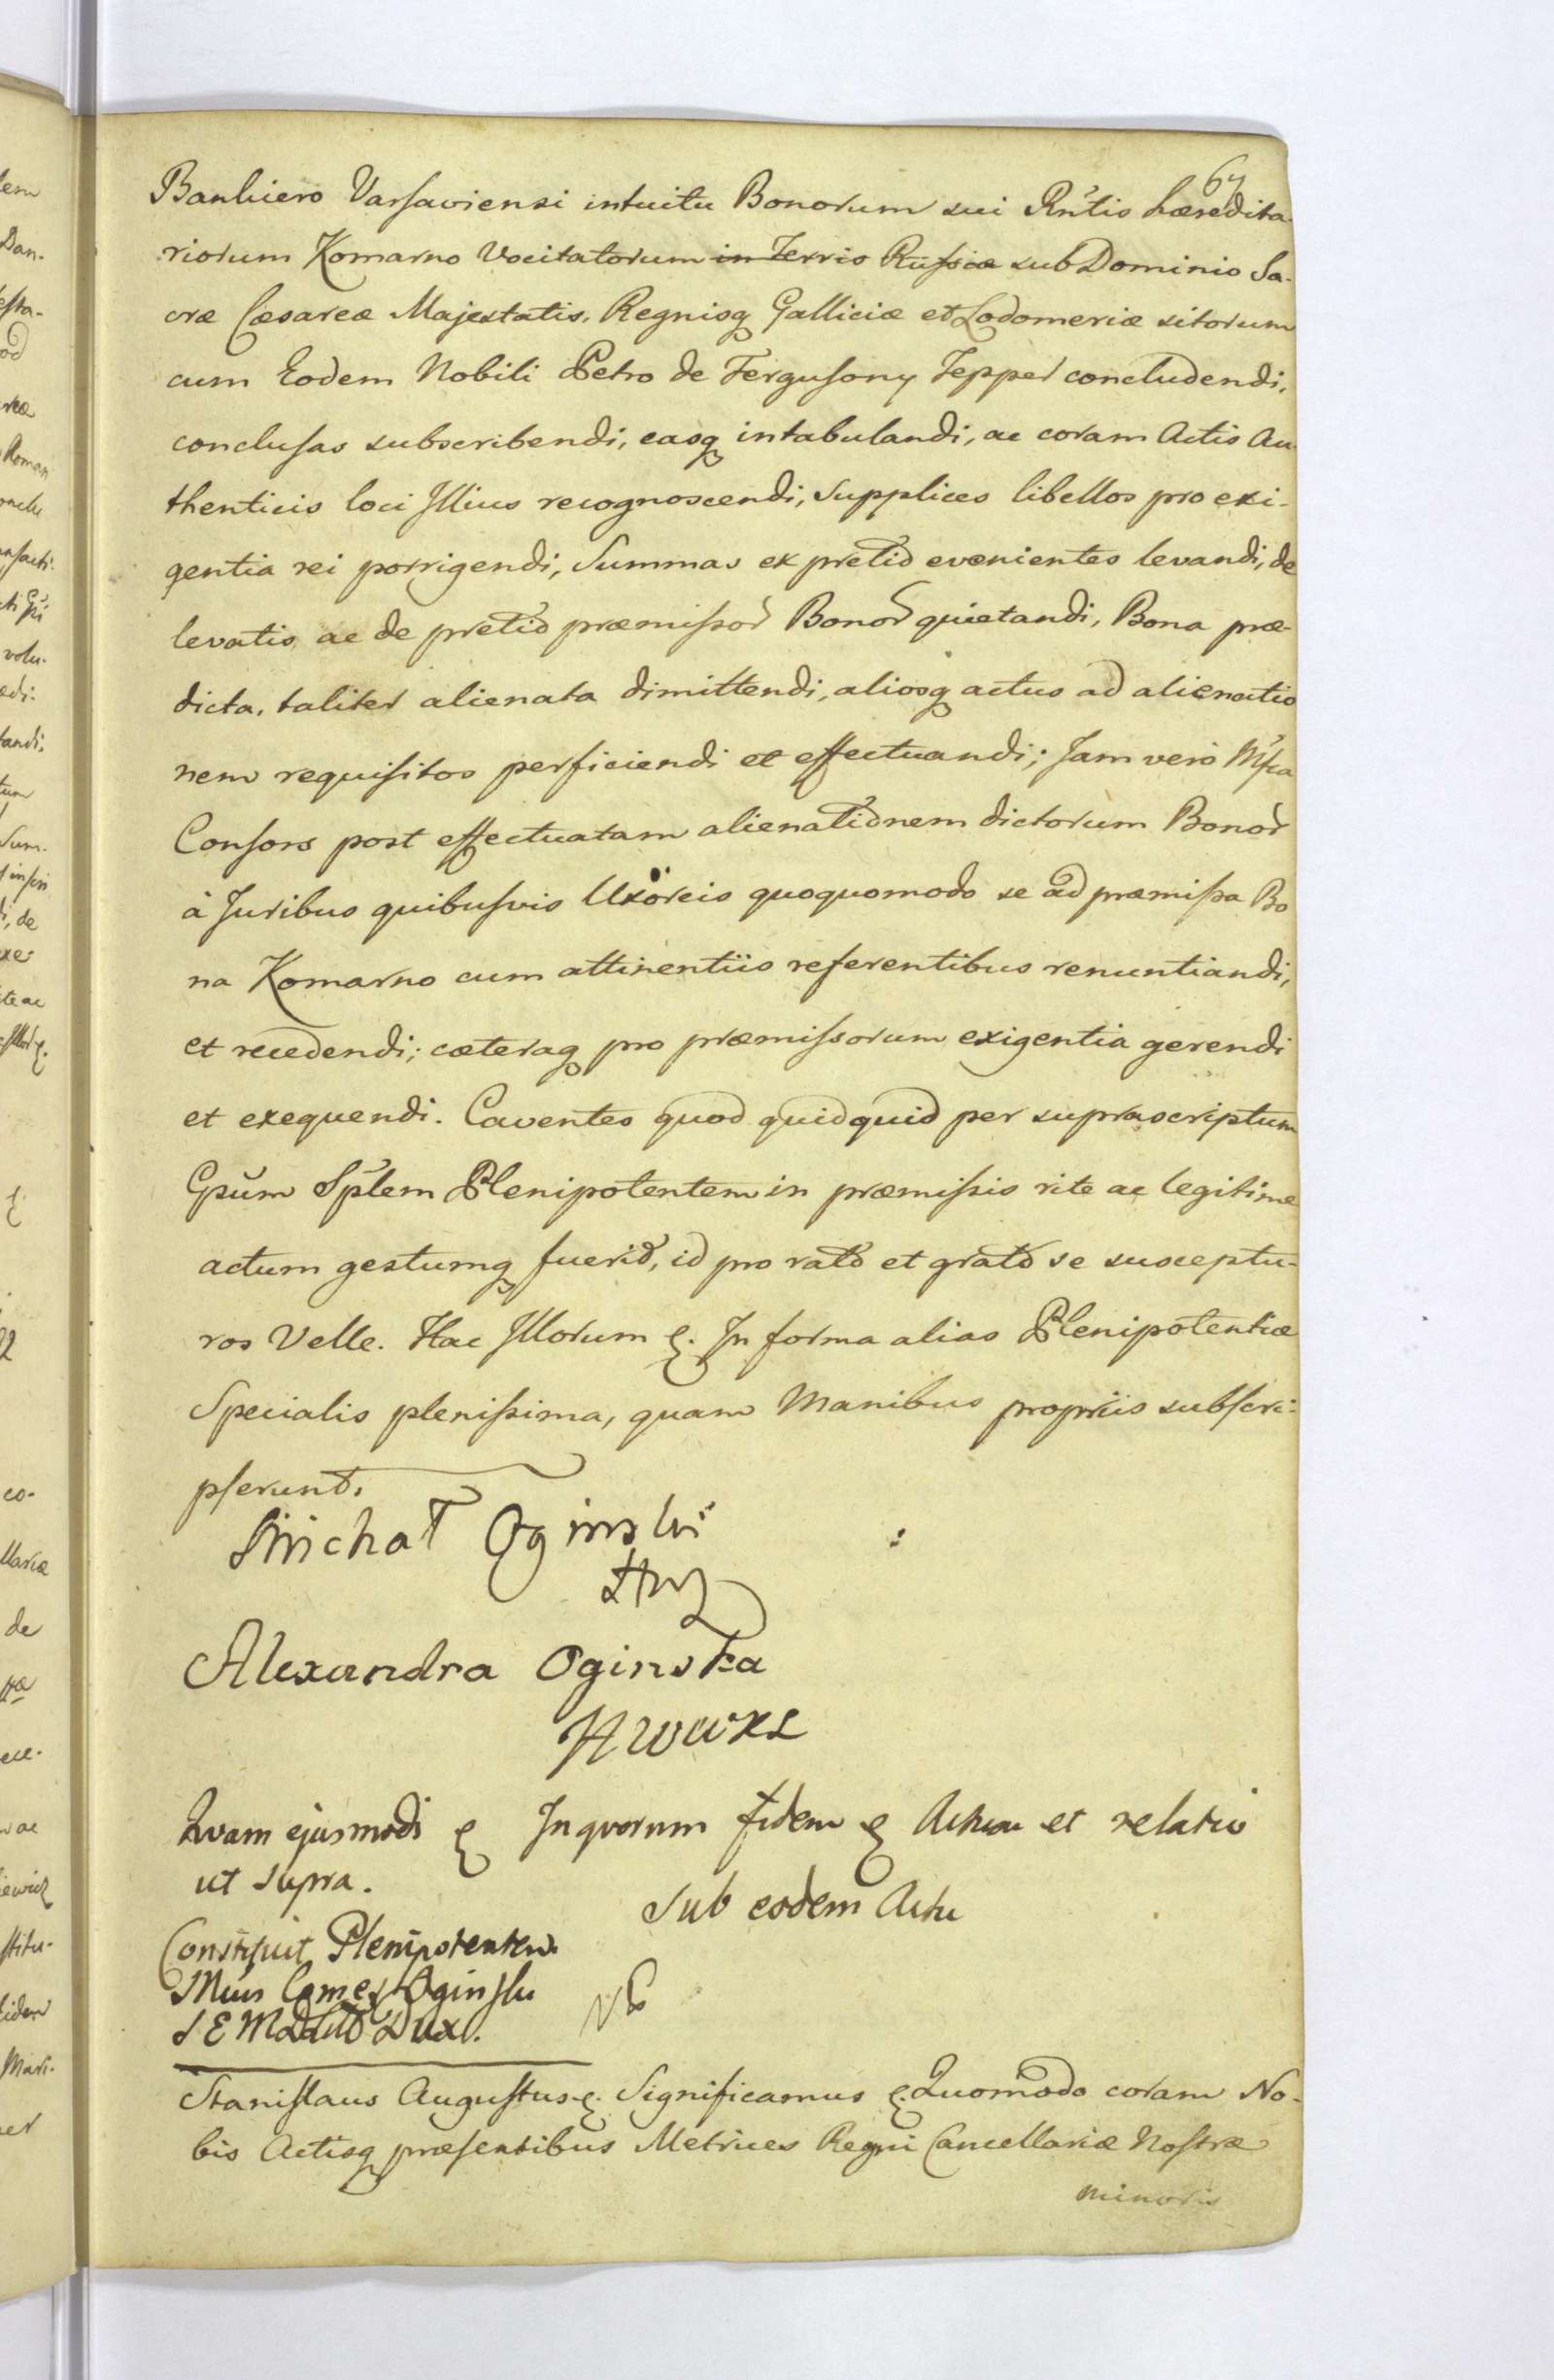 67
Bankiero Varsaviensi intuitu Bonorum sui Rñtis hæredita-
riorum Komarno Vocitatorum in Terris Russiæ sub Dominio Sa-
cræ Cæsareæ Majestatis, Regnisq Galliciæ et Lodomeriæ sitorum
cum Eodem Nobili Petro de Fergusony Tepper concludendi,
conclusas subscribendi, easq intabulandi, ac coram Actis Au-
thenticis loci Illius recognoscendi, Supplices libellos pro exi-
gentia rei porrigendi, Summas ex pretio evenientes levandi, de
levatis ac de pretio præmissor Bonor quietandi, Bona præ-
dicta, taliter alienata dimittendi, aliosq actus ad alienatio
nem requisitos perficiendi et effectuandi; Jam vero Mfca
Consors post effectuatam alienationem dictorum Bonor
à Juribus quibusvis Uxoreis quoquomodo se ad præmissa Bo
na Komarno cum attinentiis referentibus renuntiandi,
et recedendi; cæteraq pro præmissorum exigentia gerendi
et exequendi. Caventes quod quidquid per suprascriptum
Gsum Splem Plenipotentem in præmissis rite ac legitime
actum gestumq fuerit, id pro rato et grato se susceptu-
ros Velle. Hac Illorum &. In forma alias Plenipotentiæ
Specialis plenissima, quam Manibus propriis subscri-
pserunt.
Michał Oginski
HWL
Alexandra Oginska
HWWXL
Quam ejusmodi & In quorum fidem & Actum et relatio
ut supra.
Sub eodem Actu
Constituit Plenipotentem
Mcus Comes Oginski
S E M D Litt Dux.
Stanislaus Augustus &. Significamus &. Quomodo coram No-
bis Actisq præsentibus Metrices Regni Cancellariæ Nostræ
minoris